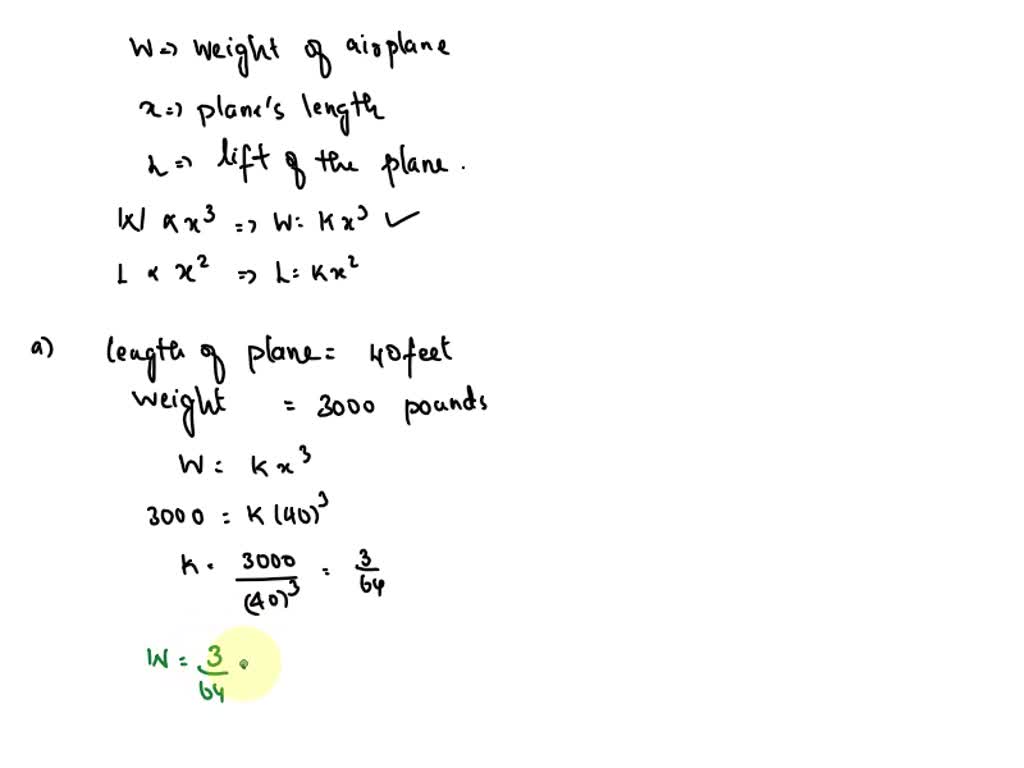 W => weight of airplane
x => plane's length
L => lift of the plane.
W ∝ x³ => W = Kx³ ✓
L ∝ x² => L = Kx²
a) length of plane = 40 feet
weight = 3000 pounds
W = Kx³
3000 = K(40)³
K = 3000/(40)³ = 3/64
W = 3/64 ·